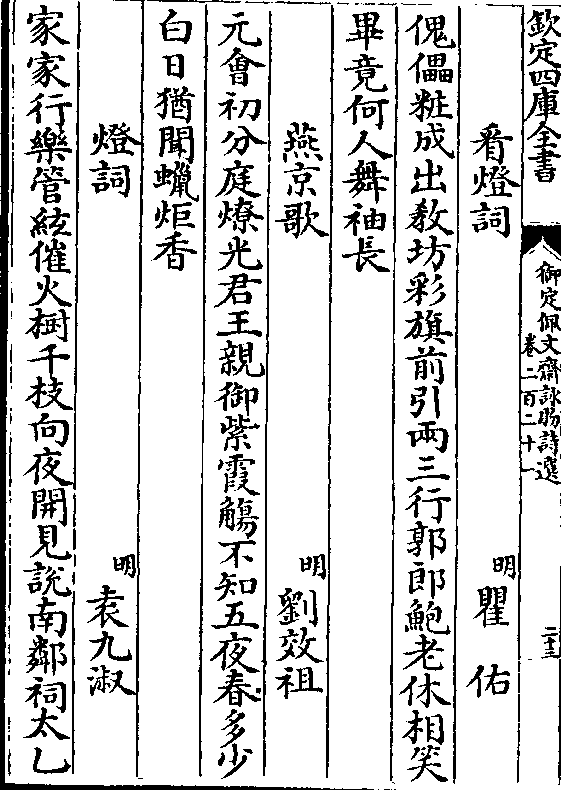 欽定四庫全書
御定佩文齋詠物詩選
卷二百二十一
二十三
看燈詞
明瞿佑
傀儡粧成出教坊彩旗前引兩三行郭郎鮑老休相笑
畢竟何人舞袖長
燕京歌
明劉效祖
元會初分庭燎光君王親御紫霞觴不知五夜春多少
白日猶聞蠟炬香
燈詞
明袁九淑
家家行樂管絃催火樹千枝向夜開見說南鄰祠太乙